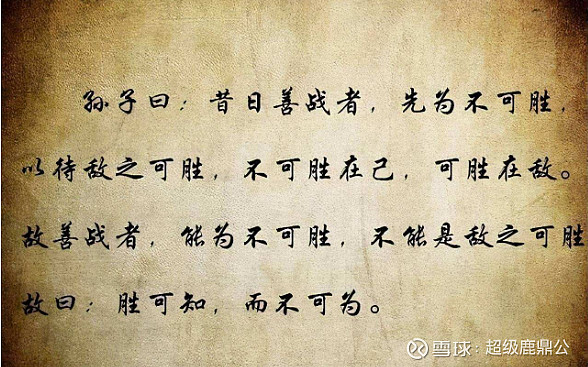 孙子曰：昔日善战者，先为不可胜，
以待敌之可胜，不可胜在己，可胜在敌。
故善战者，能为不可胜，不能是敌之可胜
故曰：胜可知，而不可为。
雪球：超级鹿鼎公